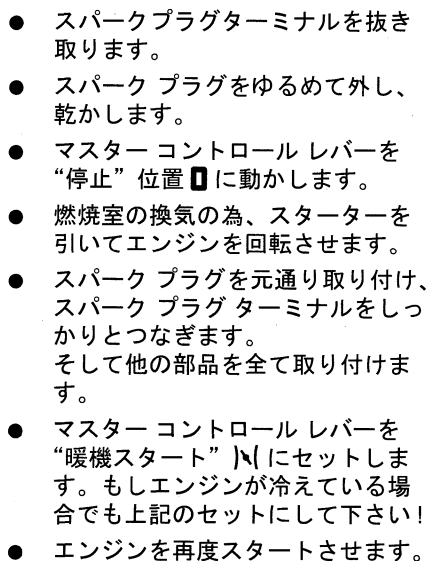 ● スパークプラグターミナルを抜き
取ります。
● スパーク プラグをゆるめて外し、
乾かします。
● マスター コントロール レバーを
“停止” 位置 0 に動かします。
● 燃焼室の換気の為、スターターを
引いてエンジンを回転させます。
● スパーク プラグを元通り取り付け、
スパーク プラグ ターミナルをしっ
かりとつなぎます。
そして他の部品を全て取り付けま
す。
● マスター コントロール レバーを
“暖機スタート” にセットしま
す。もしエンジンが冷えている場
合でも上記のセットにして下さい!
● エンジンを再度スタートさせます。